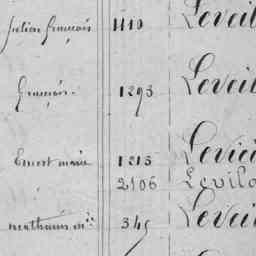 Julien françois 1110 Leveil
françois. 1293 Leveil
Ernest marie 1215 Levie
2106 Levilo
mathurin m.ie 345 Leveil